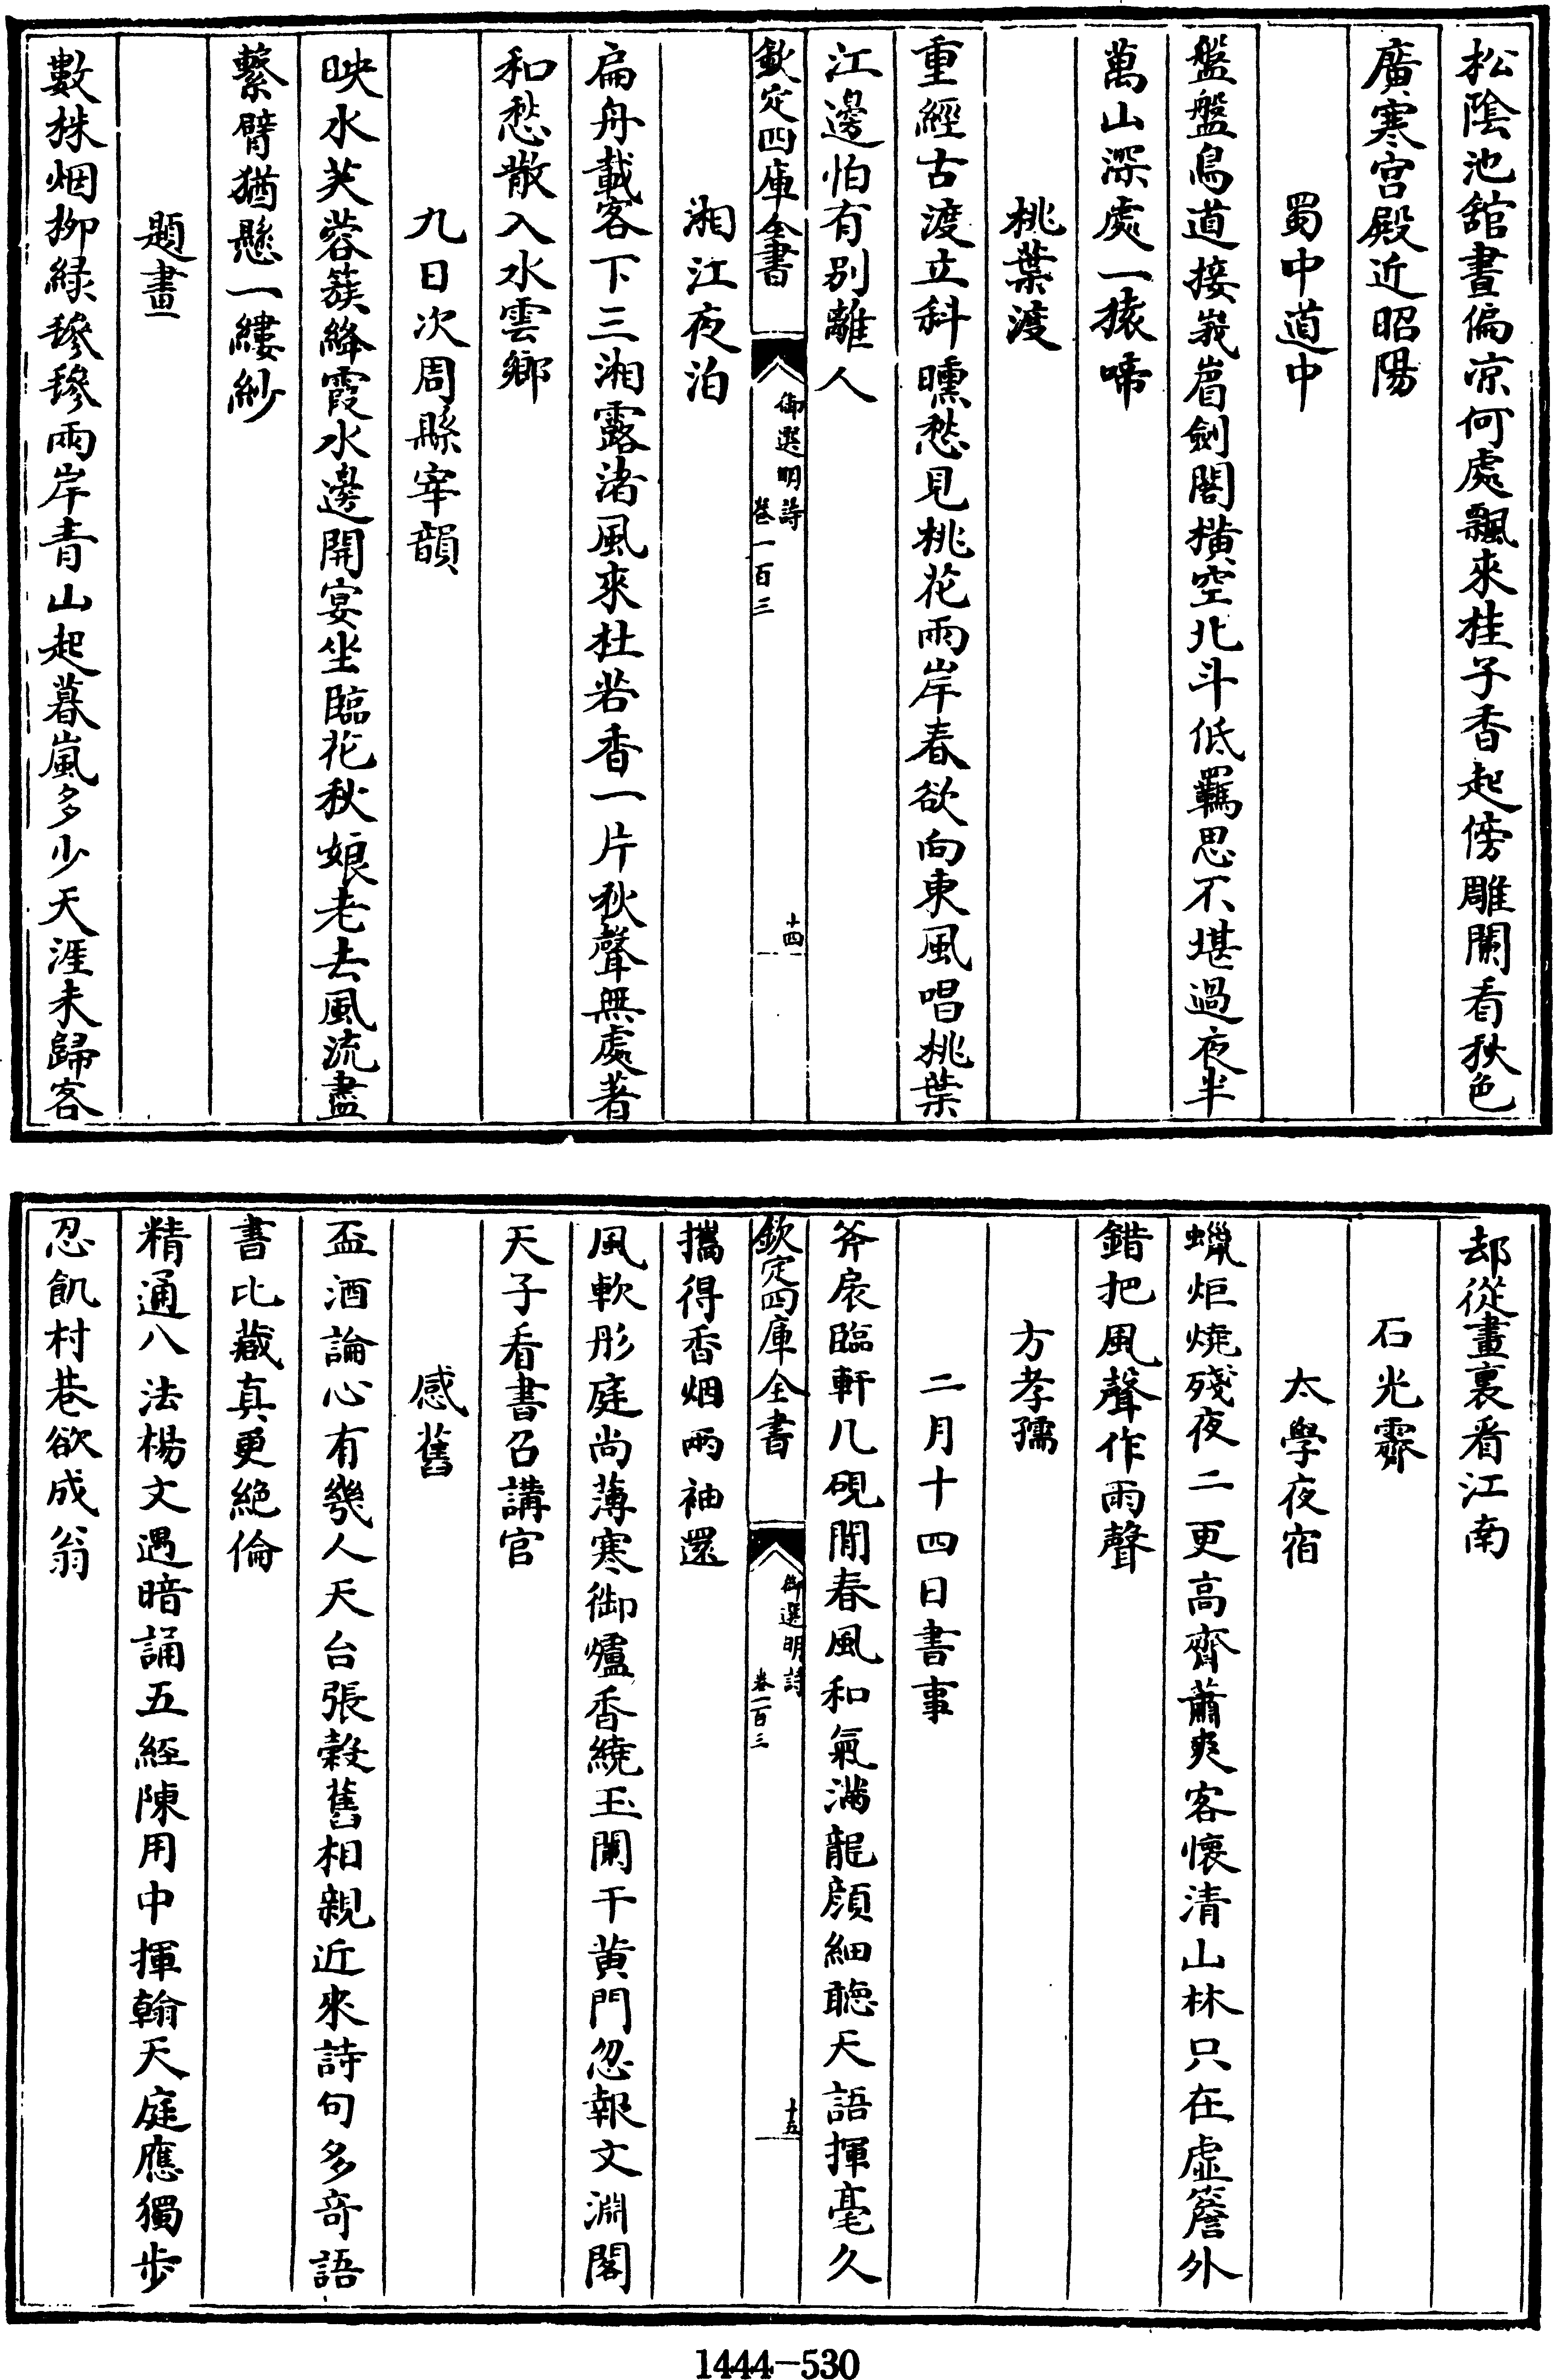 松陰池舘晝偏凉何處飄來桂子香起傍雕闌看秋色
廣寒宫殿近昭陽
蜀中道中
盤盤鳥道接峩眉劍閣横空北斗低羈思不堪過夜半
萬山深處一猿啼
桃葉渡
重經古渡立科曛愁見桃花兩岸春欲向東風唱桃葉
江邊怕有别離人
欽定四庫全書
御選明詩
卷一百三
十四
湘江夜泊
扁舟載客下三湘露渚風來杜若香一片秋聲無處著
和愁散入水雲鄉
九日次周縣宰韻
映水芙蓉簇絳霞水邊開宴坐臨花秋娘老去風流盡
繫臂猶懸一縷紗
題畫
數株烟柳緑毿毿兩岸青山起暮嵐多少天涯未歸客
却從畫裏看江南
石光霽
太學夜宿
蠟炬燒殘夜二更高齊蕭爽客懷清山林只在虛簷外
錯把風聲作雨聲
方孝孺
二月十四日書事
斧扆臨軒几硯閒春風和氣滿龍顔細聴天語揮毫久
欽定四庫全書
御選明詩
卷一百三
十五
攜得香烟兩袖還
風軟彤庭尚薄寒御爐香繞玉闌干黄門忽報文淵閣
天子看書召講官
感舊
盃酒論心有幾人天台張榖舊相親近來詩句多奇語
書比藏真更絶倫
精通八法楊文遇暗誦五經陳用中揮翰天庭應獨步
忍飢村巷欲成翁
1444-530